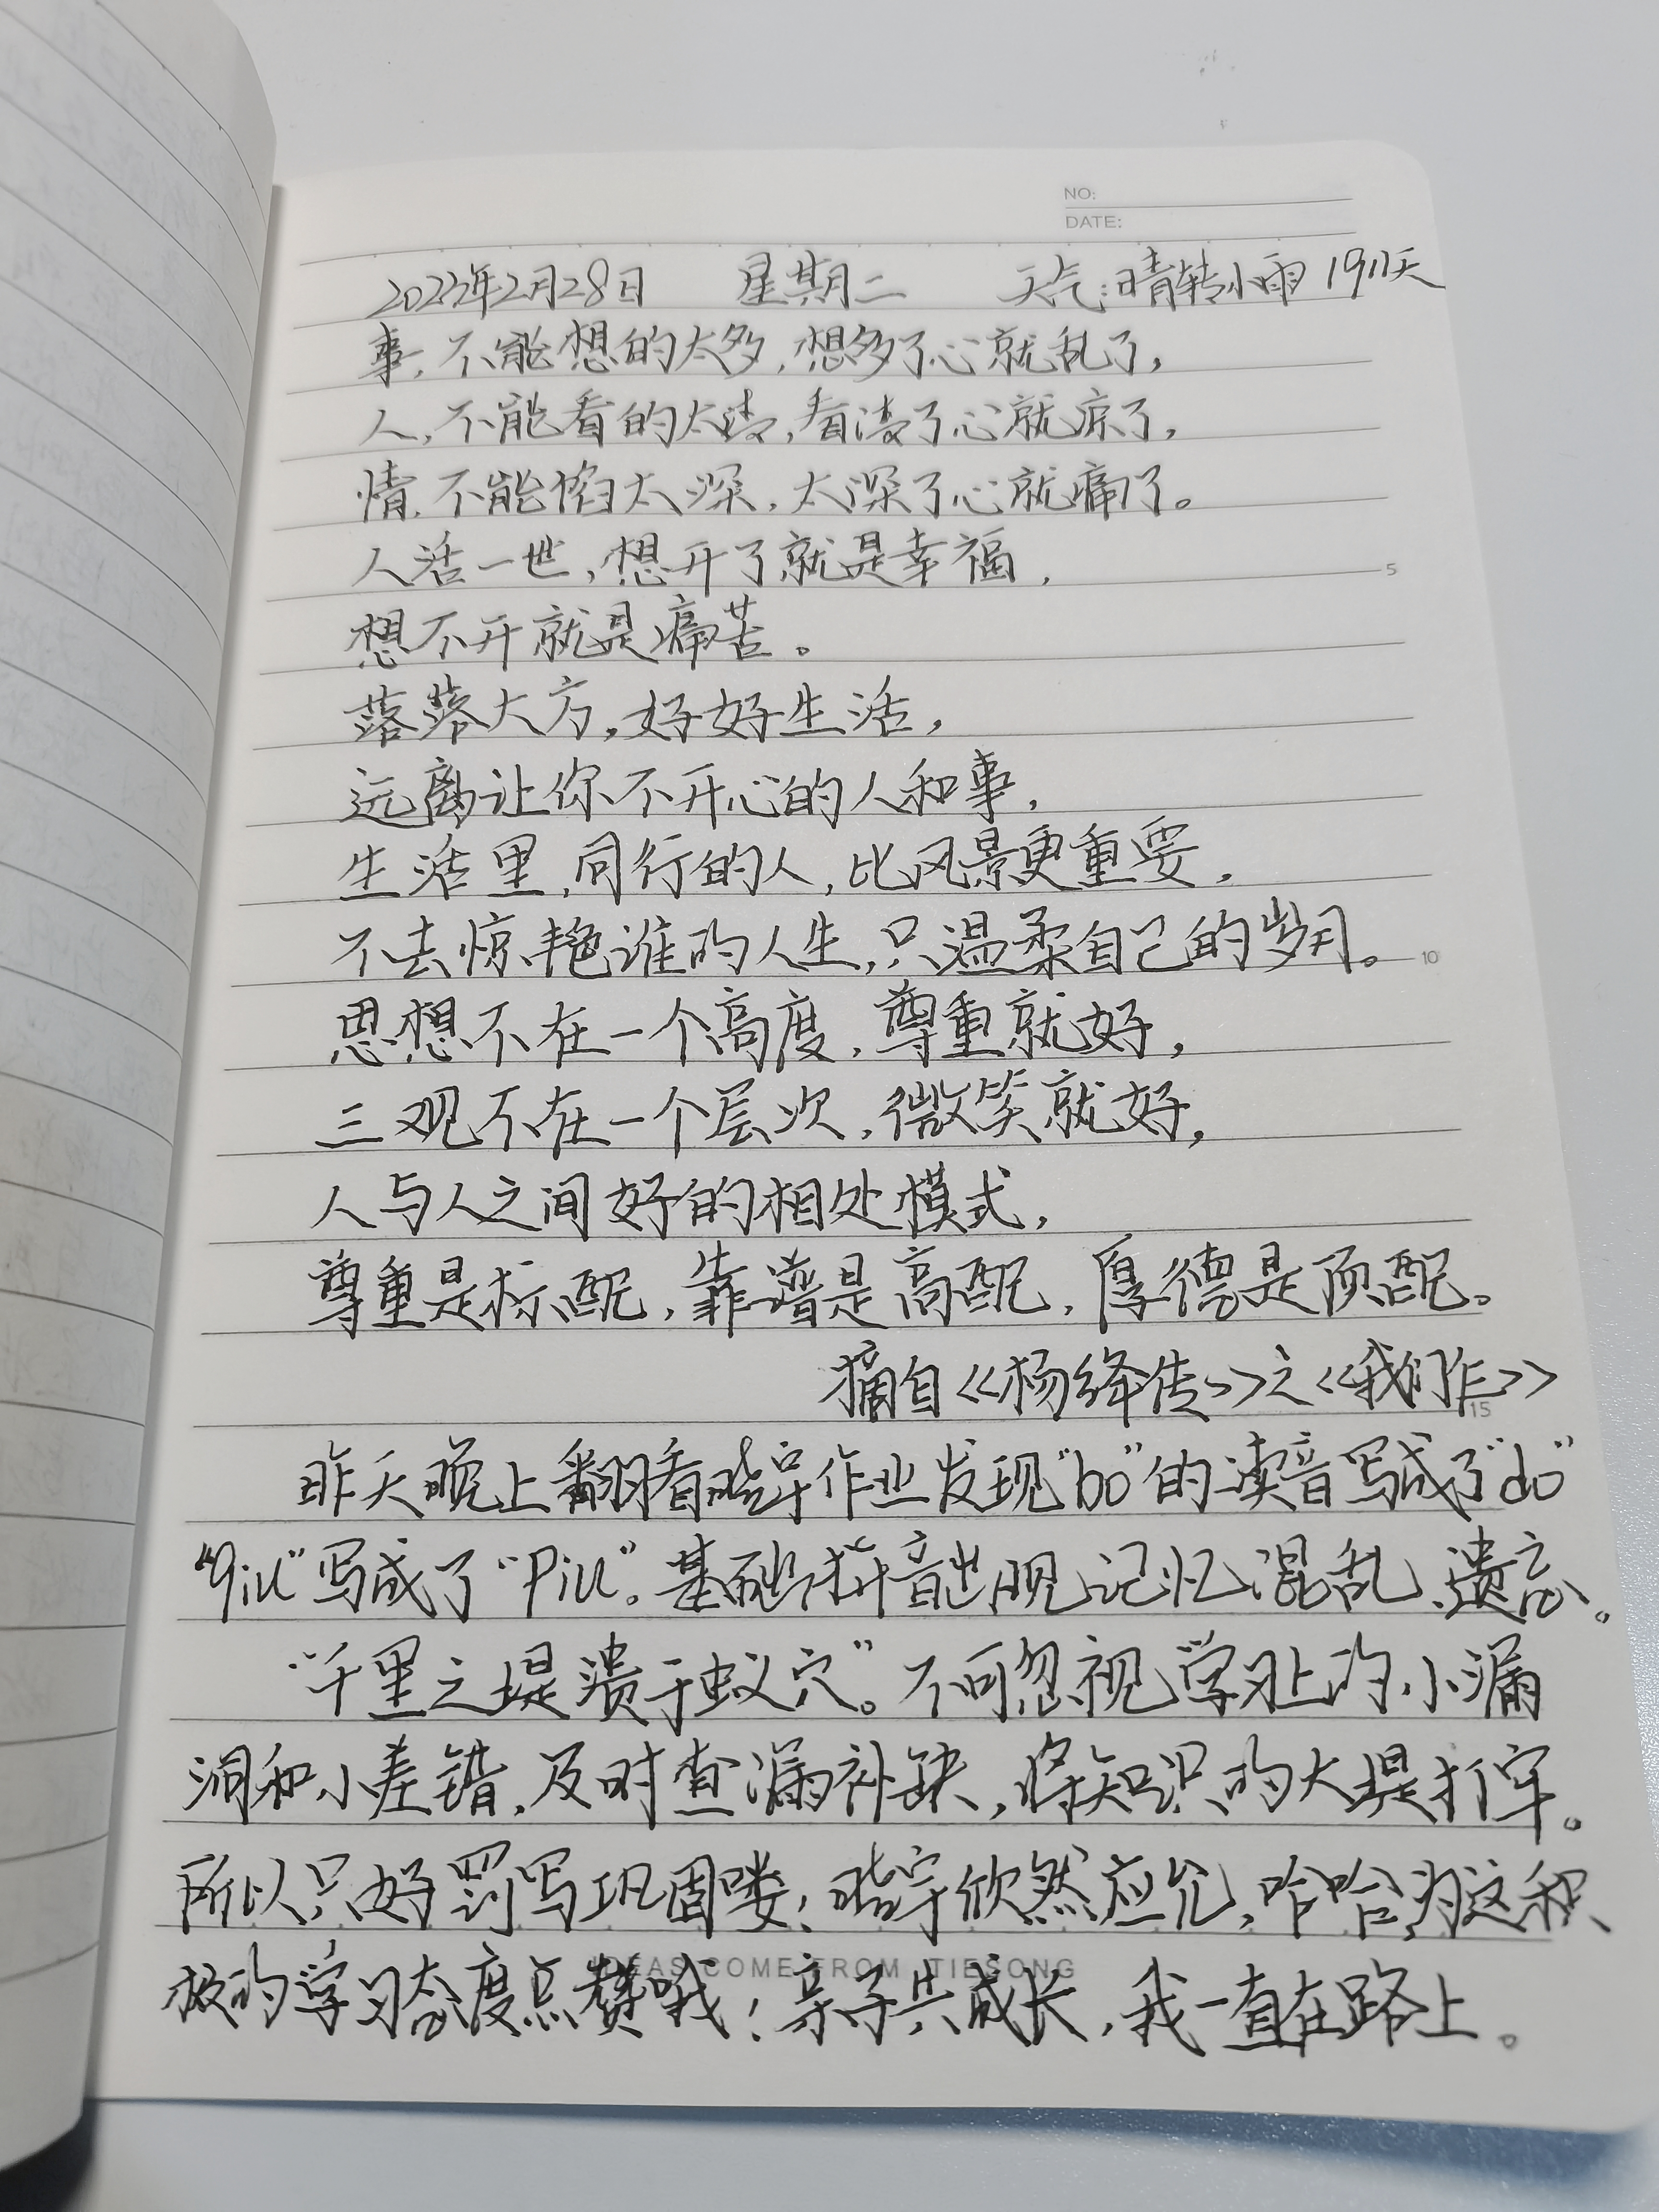 NO:
DATE:
2023年2月28日 星期二 天气:晴转小雨 1911天
事,不能想的太多,想多了心就乱了,
人,不能看的太清,看清了心就凉了,
情,不能陷太深,太深了心就痛了。
人活一世,想开了就是幸福,
5
想不开就是痛苦。
落落大方,好好生活,
远离让你不开心的人和事,
生活里,同行的人,比风景更重要,
不去惊艳谁的人生,只温柔自己的岁月。
10
思想不在一个高度,尊重就好,
三观不在一个层次,微笑就好,
人与人之间好的相处模式,
尊重是标配,靠谱是高配,厚德是顶配。
摘自《杨绛传》之《我们仨》
15
昨天晚上翻看晓宇作业发现“bo”的读音写成了“do”
“qiu”写成了“piu”。基础拼音出现记忆混乱、遗忘。
“千里之堤溃于蚁穴”。不可忽视学习上的小漏
洞和小差错,及时查漏补缺,将知识的大堤打牢。
所以只好罚写巩固喽!晓宇欣然应允,哈哈,为这积
极的学习态度点赞哦!亲子共成长,我一直在路上。
IDEAS COME FROM TIESONG